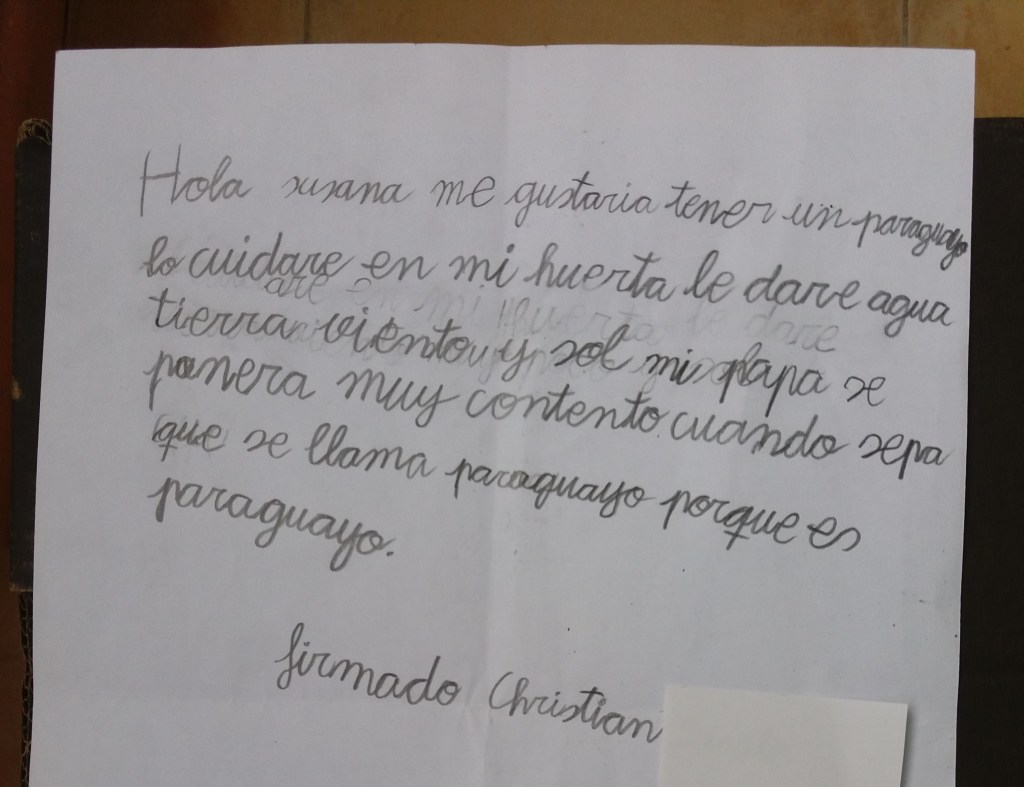 Hola susana me gustaria tener un paraguayo
lo cuidare en mi huerta le dare agua
tierra viento y sol mi papa se
ponera muy contento cuando sepa
que se llama paraguayo porque es
paraguayo.
firmado Christian